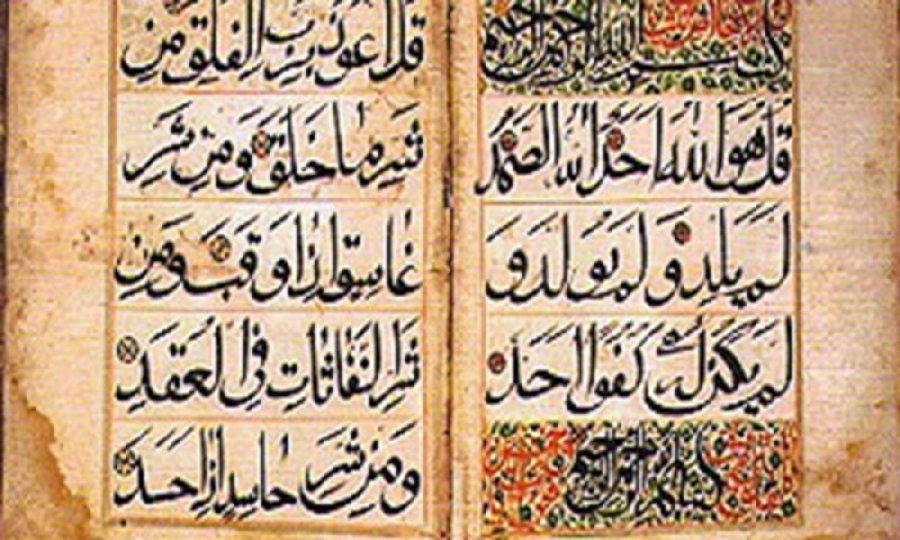 بسم الله الرحمن الرحيم
قل هو الله احد الله الصمد
لم يلد ولم يولد و
لم يكن له كفوا احد
بسم الله الرحمن الرحيم
قل اعوذ برب الفلق من
شر ما خلق ومن شر
غاسق اذا وقب ومن
شر النفاثات في العقد
ومن شر حاسد اذا حسد